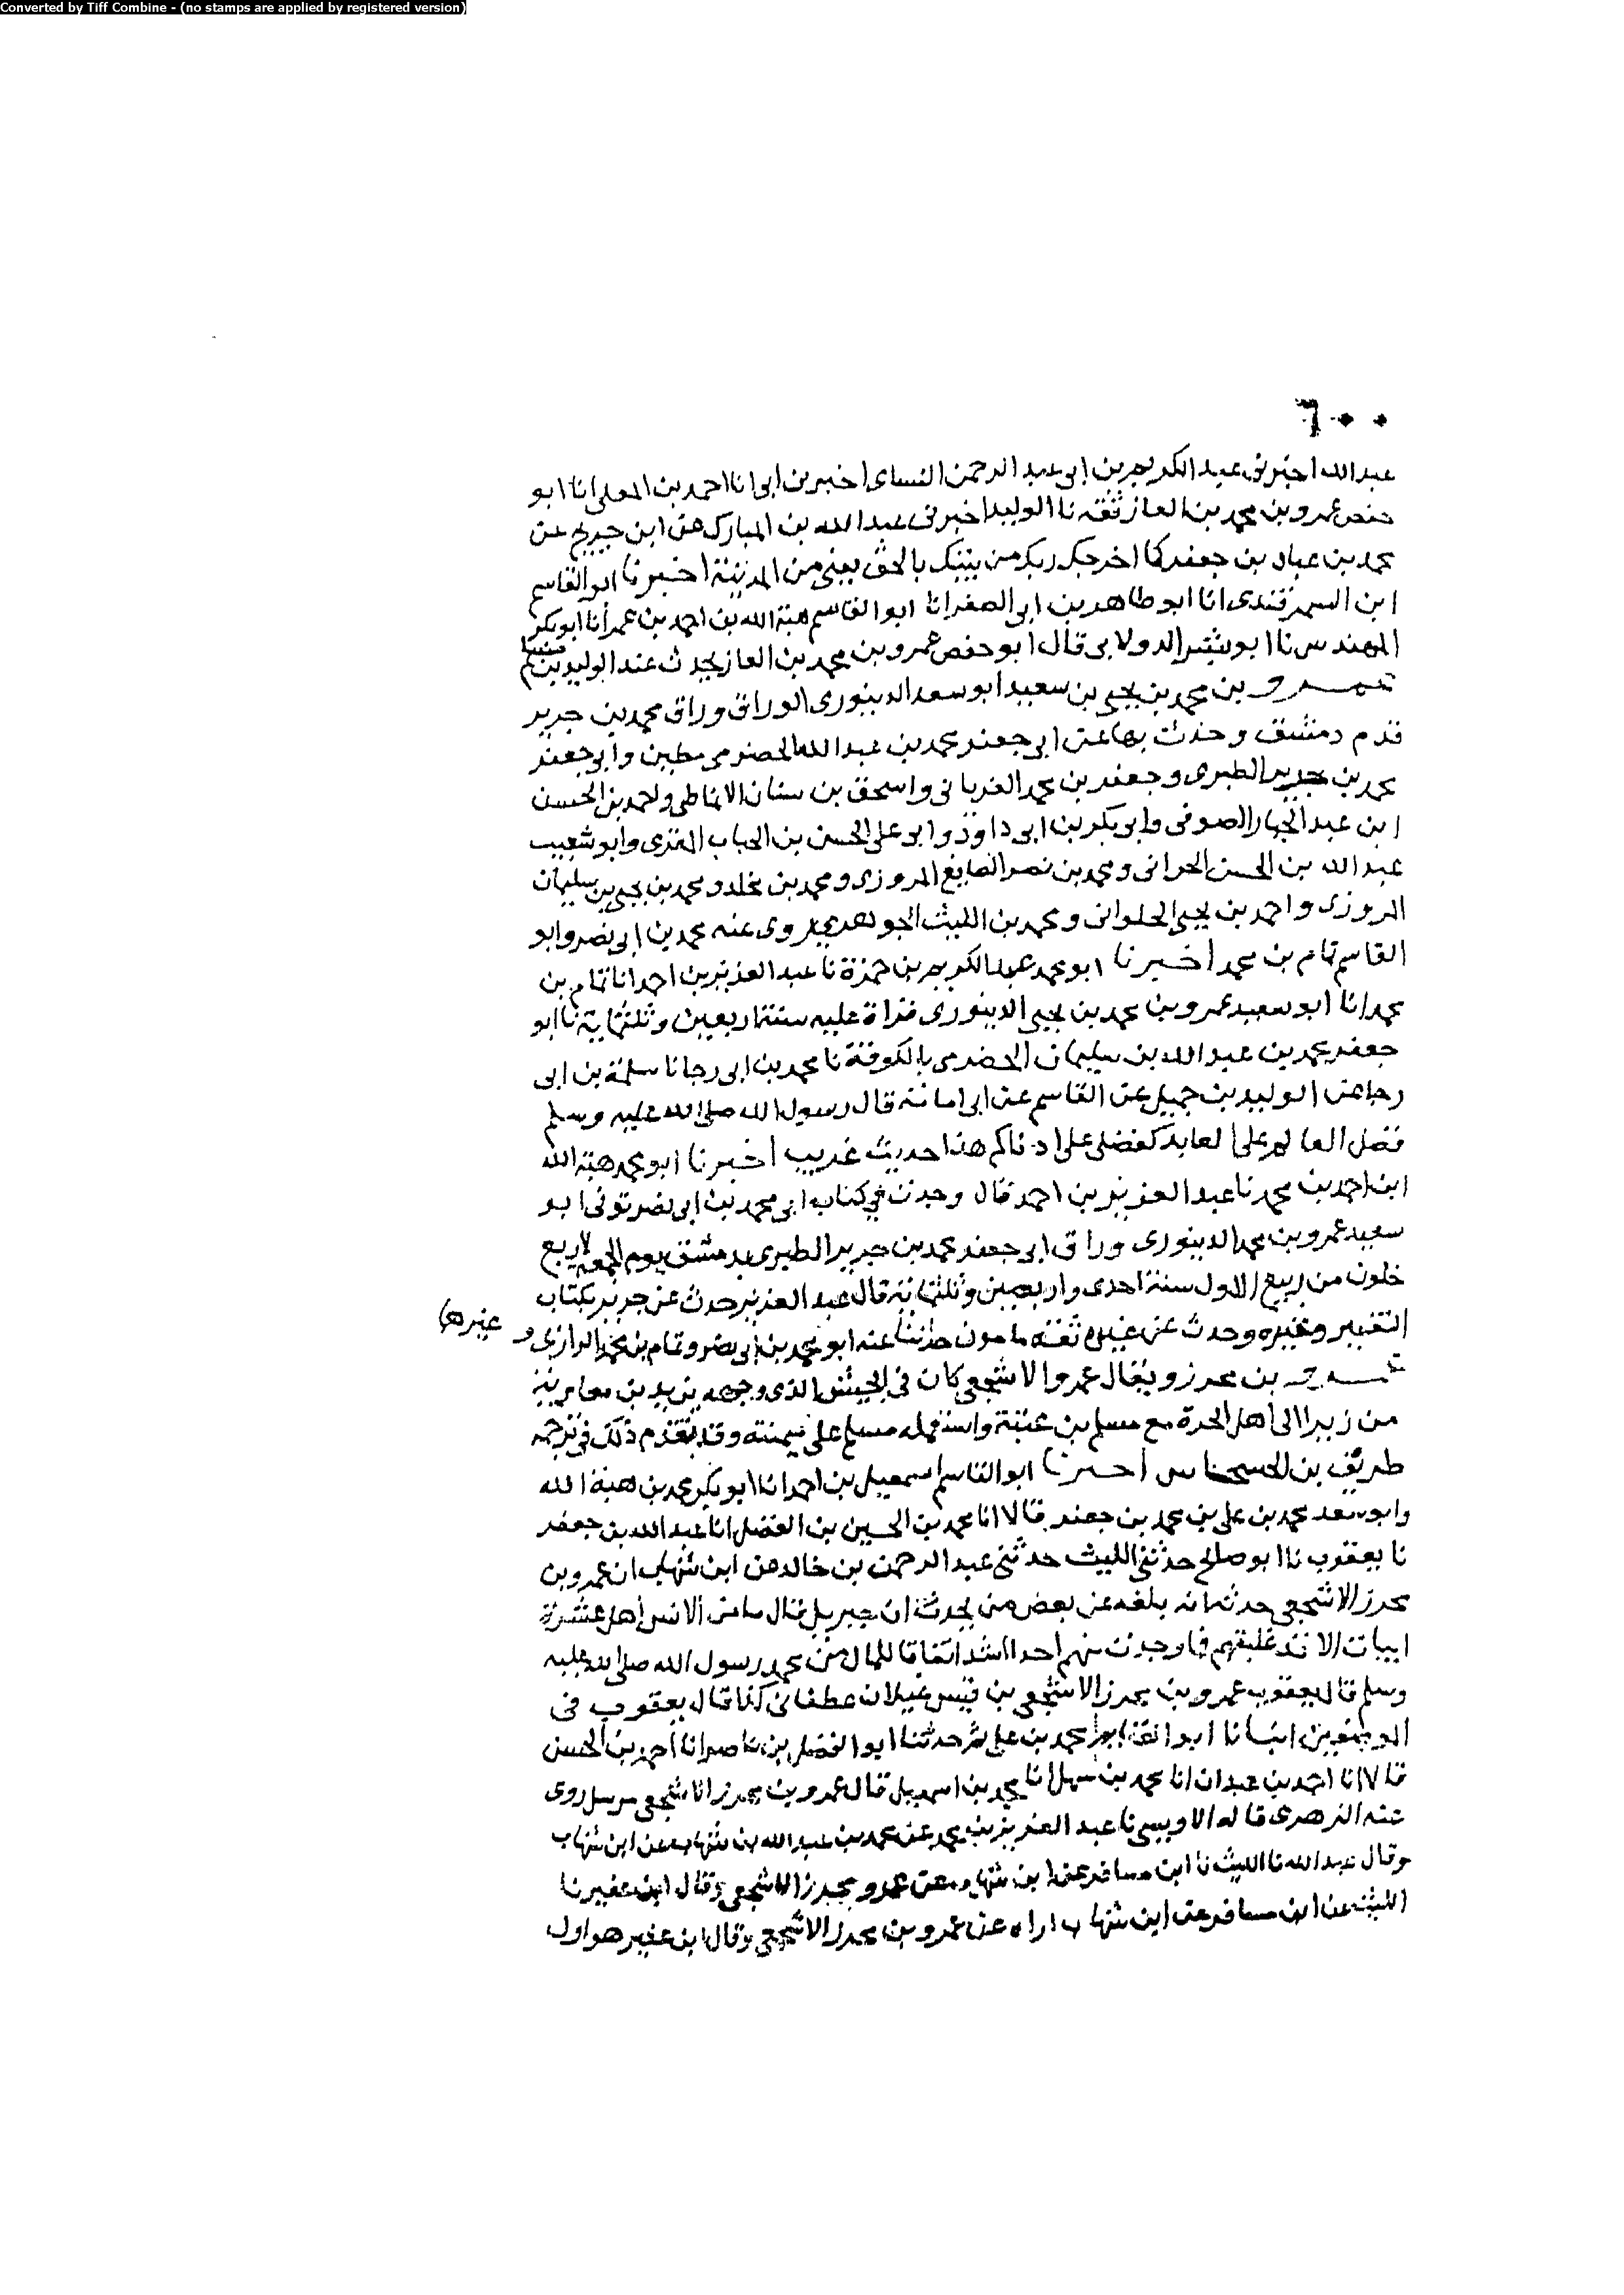 Converted by Tiff Combine - (no stamps are applied by registered version)
٦٠٠
عبد الله اخبرنى عبد الكريم بن ابى عبد الرحمن النساى اخبرنى ابى انا احمد بن المعلى انا ابو
حفص عمرو بن محمد بن الغاز ثقه نا الوليد اخبرنى عبد الله بن المبارك عن ابن جريج عن
محمد بن عباد بن جعفر كما اخرجك ربك من بيتك بالحق يعنى من المدينة اخبرنا ابو القاسم
ابن السمرقندى انا ابو طاهر بن ابى الصقر انا ابو القاسم هبة الله بن احمد بن عمر انا ابو بكر
المهندس نا ابو بشر الدولابى قال ابو حفص عمرو بن محمد بن الغاز يحدث عند الوليد بن مسلم
عمرو بن محمد بن يحيى بن سعيد ابو سعد الدينورى الوراق وراق محمد بن جرير
قدم دمشق وحدث بها عن ابى جعفر محمد بن عبد الله الحضرمى مطين وابى جعفر
محمد بن جرير الطبرى وجعفر بن محمد الفريانى واسحق بن سنان الانماطى واحمد بن الحسن
ابن عبد الجبار الصوفى وابى بكر بن ابى داوود وابو على الحسن بن الحباب المقرى وابو شعيب
عبد الله بن الحسن الحرانى ومحمد بن نصر الصايغ المروزى ومحمد بن مخلد ومحمد بن يحيى بن سليمان
المروزى واحمد بن يحيى الحلوانى ومحمد بن الليث الجوهرى روى عنه محمد بن ابى نصر وابو
القاسم تمام بن محمد اخبرنا ابو محمد عبد الكريم بن حمزة نا عبد العزيز بن احمد انا تمام بن
محمد انا ابو سعيد عمرو بن محمد بن يحيى الدينورى قراة عليه سنة اربعين وثلثماية نا ابو
جعفر محمد بن عبد الله بن سليمان الحضرمى بالكوفة نا محمد بن ابى رجا نا سلمة بن ابى
رجا عن الوليد بن جميل عن القاسم عن ابى امامة قال رسول الله صلى الله عليه وسلم
فضل العالم على العابد كفضلى على ادناكم هذا حديث غريب اخبرنا ابو محمد هبة الله
ابن احمد بن محمد نا عبد العزيز بن احمد قال وجدت فى كتاب ابى محمد بن ابى نصر توفى ابو
سعيد عمرو بن محمد الدينورى وراق ابى جعفر محمد بن جرير الطبرى بدمشق يوم الجمعه لاربع
خلون من ربيع الاول سنة احدى واربعين وثلثمائة قال عبد العزيز حدث عن جرير بكتاب
التفسير وغيره وحدث عن غيره ثقه مامون حدثنا عنه ابو محمد بن ابى نصر وتمام بن محمد الرازى وغيرها
عمرو بن محرز ويقال عمر الاشجعى كان فى الجيش الذى وجهه يزيد بن معاوية
من زيرا الى اهل الحرة مع مسلم بن عقبة واستعمله مسلم على ميمنته وقد تقدم ذلك فى ترجمه
طريف بن الحسحاس اخبرنا ابو القاسم اسمعيل بن احمد انا ابو بكر محمد بن هبة الله
وابو سعد محمد بن على بن محمد بن جعفر قالا انا محمد بن الحسين بن الفضل انا عبد الله بن جعفر
نا يعقوب نا ابو صالح حدثنى الليث حدثنى عبد الرحمن بن خالد عن ابن شهاب ان عمرو بن
محرز الاشجعى حدثه انه بلغه عن بعض من يحدث ان جبريل قال ما من الانس اهل عشرة
ابيات الا قد غلبتهم فما وجدت منهم احدا اشد انفاقا للمال من محمد رسول الله صلى الله عليه
وسلم قال يعقوب عمرو بن محرز الاشجعى بن قيس عيلان غطفانى كذا قال يعقوب فى
الموضعين انبانا ابو الغنايم محمد بن على ثم حدثنا ابو الفضل بن ناصر انا احمد بن الحسن
قالا انا احمد بن عبدان انا محمد بن سهل انا محمد بن اسمعيل قال عمرو بن محرز الاشجعى مرسل روى
عنه الزهرى قاله الاويسى نا عبد العزيز بن محمد عن محمد بن عبد الله بن شهاب عن ابن شهاب
وقال عبد الله نا الليث نا ابن مسافر عن ابن شهاب عن عمرو بن محرز الاشجعى وقال ابن عفير نا
الليث عن ابن مسافر عن ابن شهاب اراه عن عمرو بن محرز الاشجعى وقال ابن عفير هو اول